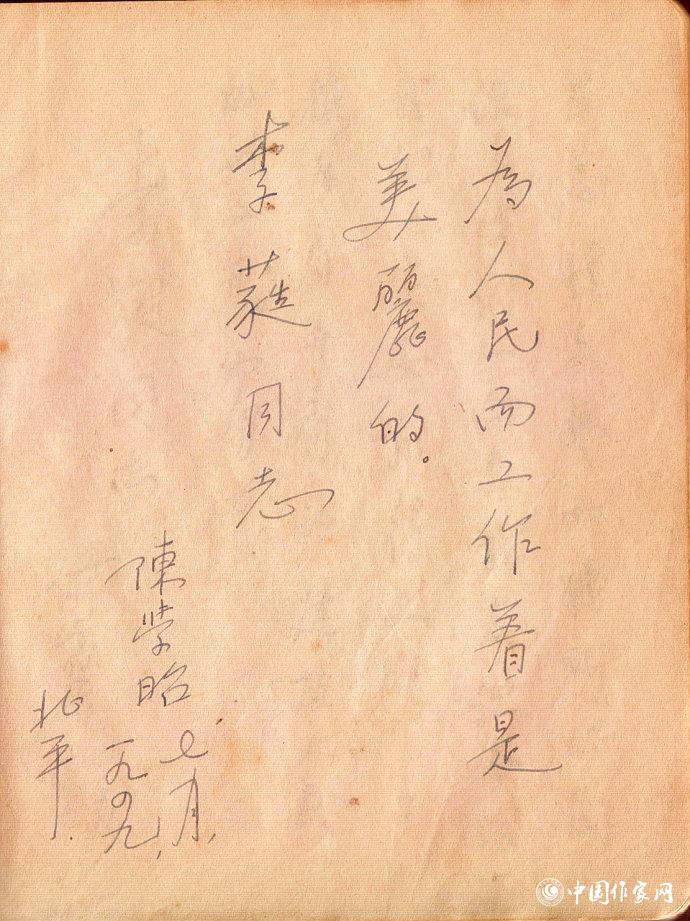 為人民而工作着是
美麗的。
李蕤同志
陳學昭
七月，
一九四九，
北平．
中国作家网